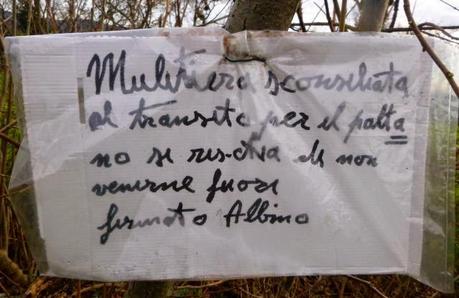 Mulitiera sconsiliata
al transito per il palta
no si rischia di non
venirne fuori
firmato Albino